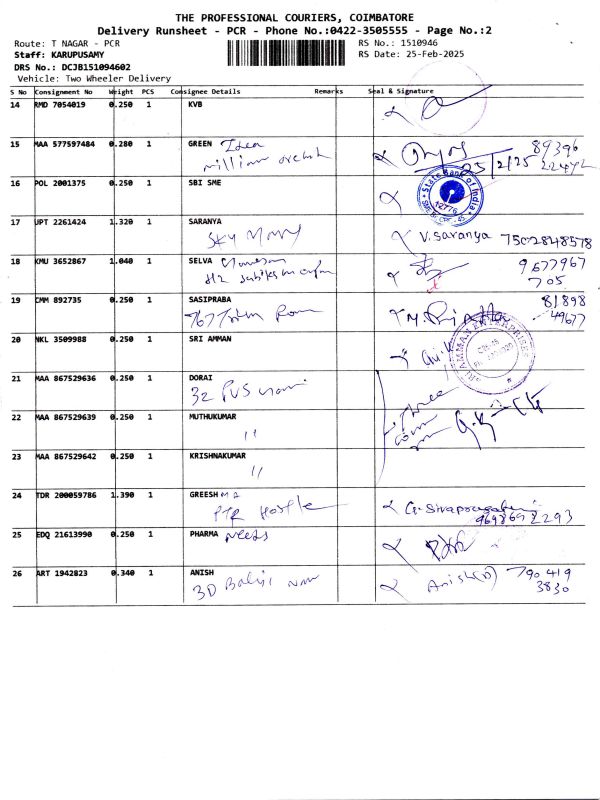 THE PROFESSIONAL COURIERS, COIMBATORE
Delivery Runsheet - PCR - Phone No.:0422-3505555 - Page No.:2
Route: T NAGAR - PCR
RS No.: 1510946
Staff: KARUPUSAMY
RS Date: 25-Feb-2025
DRS No.: DCJB151094602
Vehicle: Two Wheeler Delivery
S No Consignment No Weight PCS Consignee Details Remarks Seal & Signature
14 RMD 7054019 0.250 1 KVB
15 MAA 577597484 0.280 1 GREEN Idea 89396
million 25/2/25 22472
16 POL 2001375 0.250 1 SBI SME
State Bank of India
12776
17 UPT 2261424 1.320 1 SARANYA
V. Saranya 7502848578
18 KMU 3652867 1.040 1 SELVA 9677967
705
19 CMM 892735 0.250 1 SASIPRABA 81898
49677
20 NKL 3509988 0.250 1 SRI AMMAN
SRI AMMAN ENTERPRISES
21 MAA 867529636 0.250 1 DORAI
32 PVS
22 MAA 867529639 0.250 1 MUTHUKUMAR
"
23 MAA 867529642 0.250 1 KRISHNAKUMAR
"
24 TDR 200059786 1.390 1 GREESHMA
PTR Hostle
25 EDQ 21613990 0.250 1 PHARMA needs
26 ART 1942823 0.340 1 ANISH
3D Balaji Anish 790 419
3830